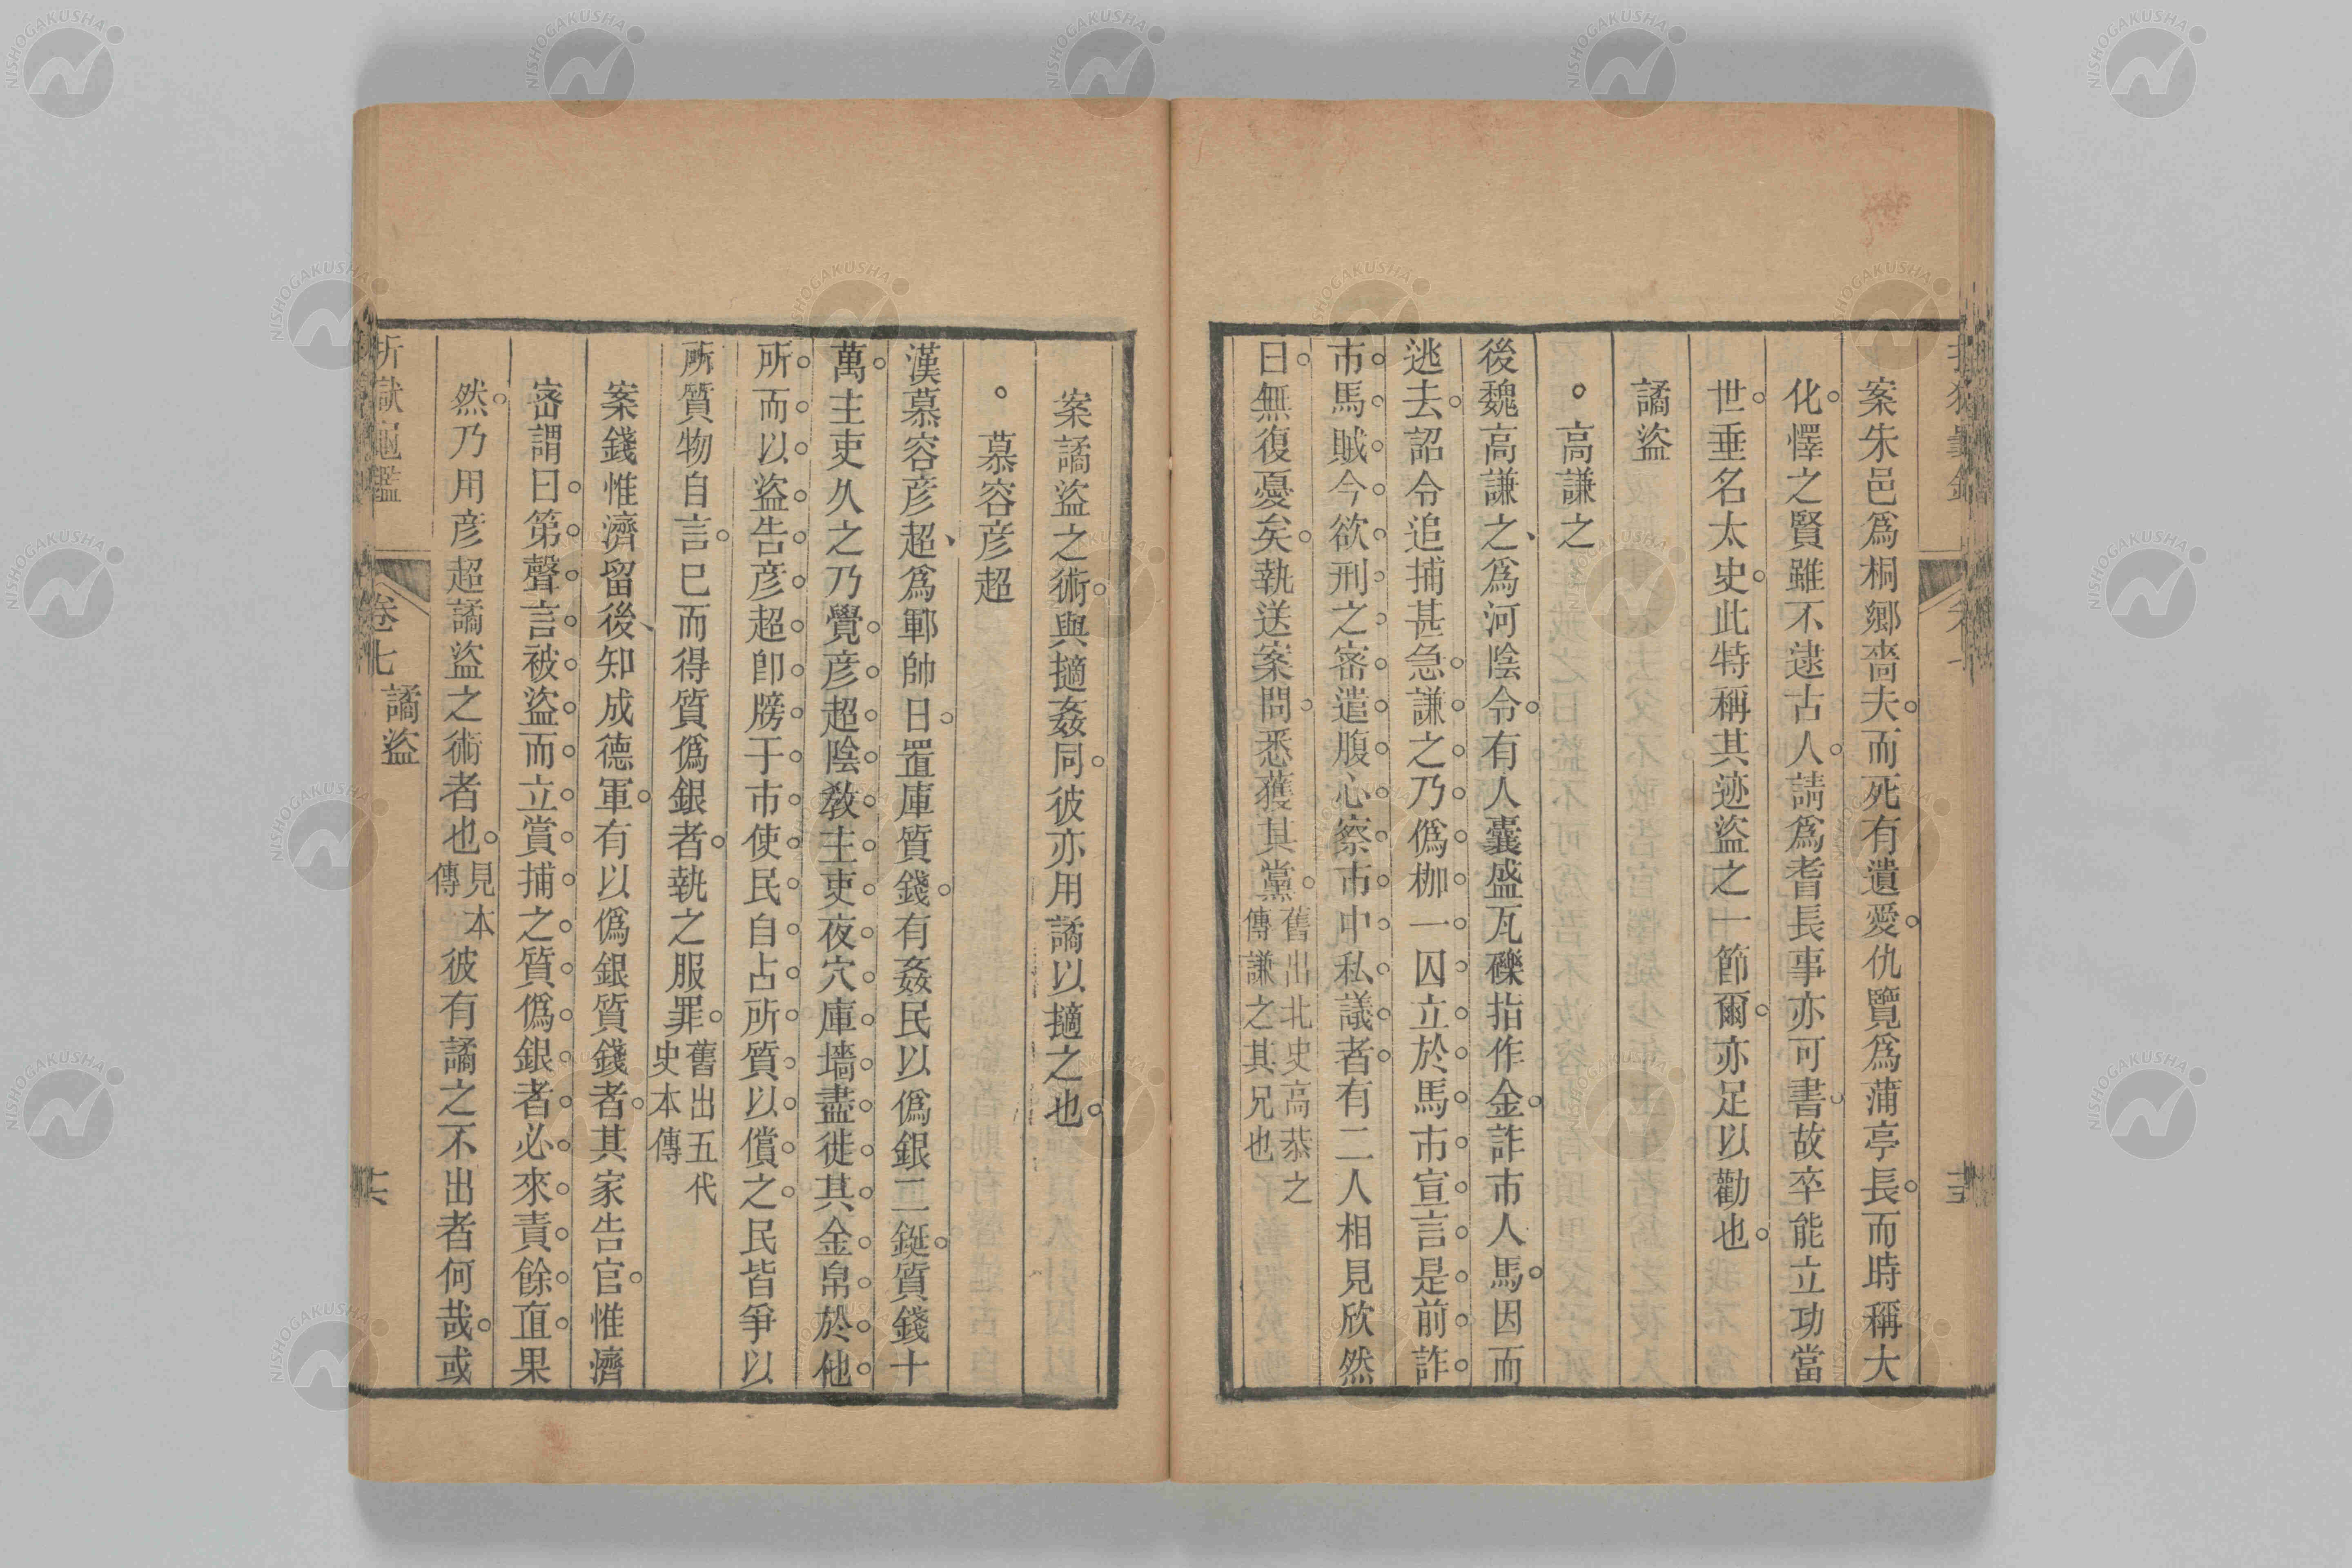 案朱邑爲桐鄉嗇夫而死有遺愛仇覽爲蒲亭長而時稱大
化懌之賢雖不逮古人請爲耆長事亦可書故卒能立功當
世垂名太史此特稱其迹盜之一節爾亦足以勸也
譎盜
高謙之
後魏高謙之爲河陰令有人囊盛瓦礫指作金詐市人馬因而
逃去詔令追捕甚急謙之乃僞枷一囚立於馬市宣言是前詐
市馬賊今欲刑之密遣腹心察市中私議者有二人相見欣然
曰無復憂矣執送案問悉獲其黨舊出北史高恭之
傳謙之其兄也
案譎盜之術與擿姦同彼亦用譎以擿之也
慕容彦超
漢慕容彦超爲鄆帥日置庫質錢有姦民以僞銀二鋌質錢十
萬主吏久之乃覺彦超陰敎主吏夜穴庫墻盡徙其金帛於他
所而以盜告彦超卽牓于市使民自占所質以償之民皆爭以
所質物自言已而得質僞銀者執之服罪舊出五代
史本傳
案錢惟濟留後知成德軍有以僞銀質錢者其家告官惟濟
密謂曰第聲言被盜而立賞捕之質僞銀者必來責餘直果
然乃用彦超譎盜之術者也見本
傳彼有譎之不出者何哉或
折獄龜鑑
卷七
譎盜
十六
NISHOGAKUSHA